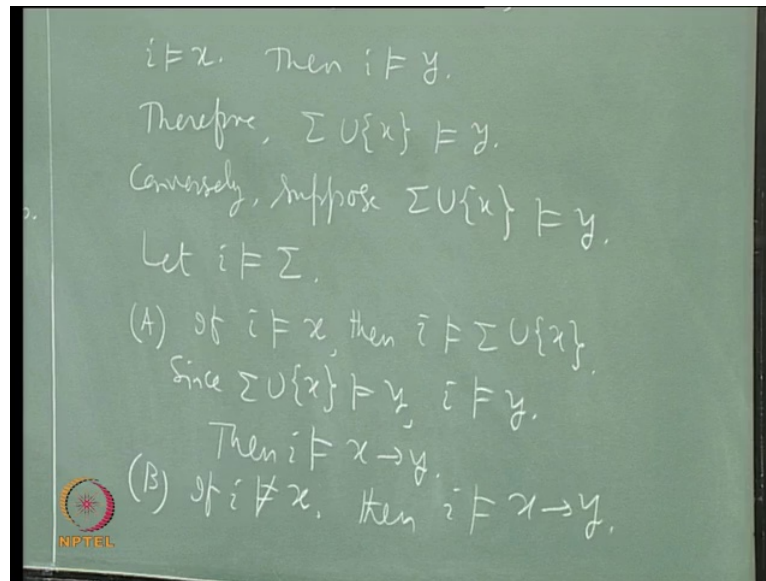 i ⊨ x. Then i ⊨ y.
Therefore, Σ ∪ {x} ⊨ y.
Conversely, suppose Σ ∪ {x} ⊨ y.
Let i ⊨ Σ.
(A) If i ⊨ x, then i ⊨ Σ ∪ {x}.
Since Σ ∪ {x} ⊨ y, i ⊨ y.
Then i ⊨ x → y.
(B) If i ⊭ x, then i ⊨ x → y.
NPTEL